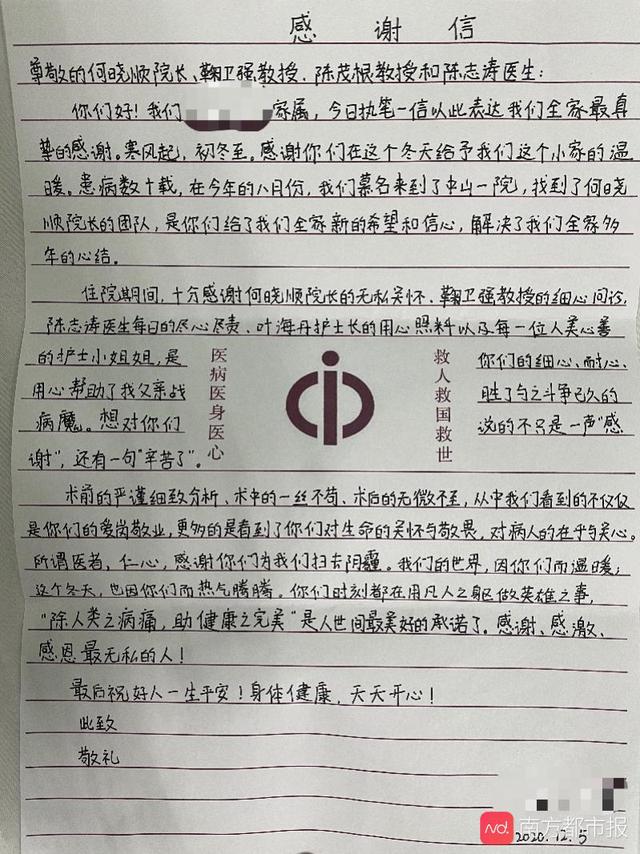 感谢信
尊敬的何晓顺院长、鞠卫强教授、陈茂根教授和陈志涛医生：
你们好！我们家属，今日执笔一信以此表达我们全家最真
挚的感谢。寒风起，初冬至。感谢你们在这个冬天给予我们这个小家的温
暖。患病数十载，在今年的八月份，我们慕名来到了中山一院，找到了何晓
顺院长的团队，是你们给了我们全家新的希望和信心，解决了我们全家多
年的心结。
住院期间，十分感谢何晓顺院长的无私关怀、鞠卫强教授的细心问诊，
陈志涛医生每日的尽心尽责、叶海丹护士长的用心照料以及每一位人美心善
的护士小姐姐，是你们的细心、耐心、
用心帮助了我父亲战胜了与之斗争已久的
病魔。想对你们说的不只是一声“感
谢”，还有一句“辛苦了”。
医病医身医心
救人救国救世
术前的严谨细致分析、术中的一丝不苟、术后的无微不至，从中我们看到的不仅仅
是你们的爱岗敬业，更多的是看到了你们对生命的关怀与敬畏，对病人的在乎与关心。
所谓医者，仁心，感谢你们为我们扫去阴霾。我们的世界，因你们而温暖；
这个冬天，也因你们而热气腾腾。你们时刻都在用凡人之躯做英雄之事，
“除人类之病痛，助健康之完美”是人世间最美好的承诺了。感谢、感激、
感恩最无私的人！
最后祝好人一生平安！身体健康，天天开心！
此致
敬礼
2020.12.5
南方都市报